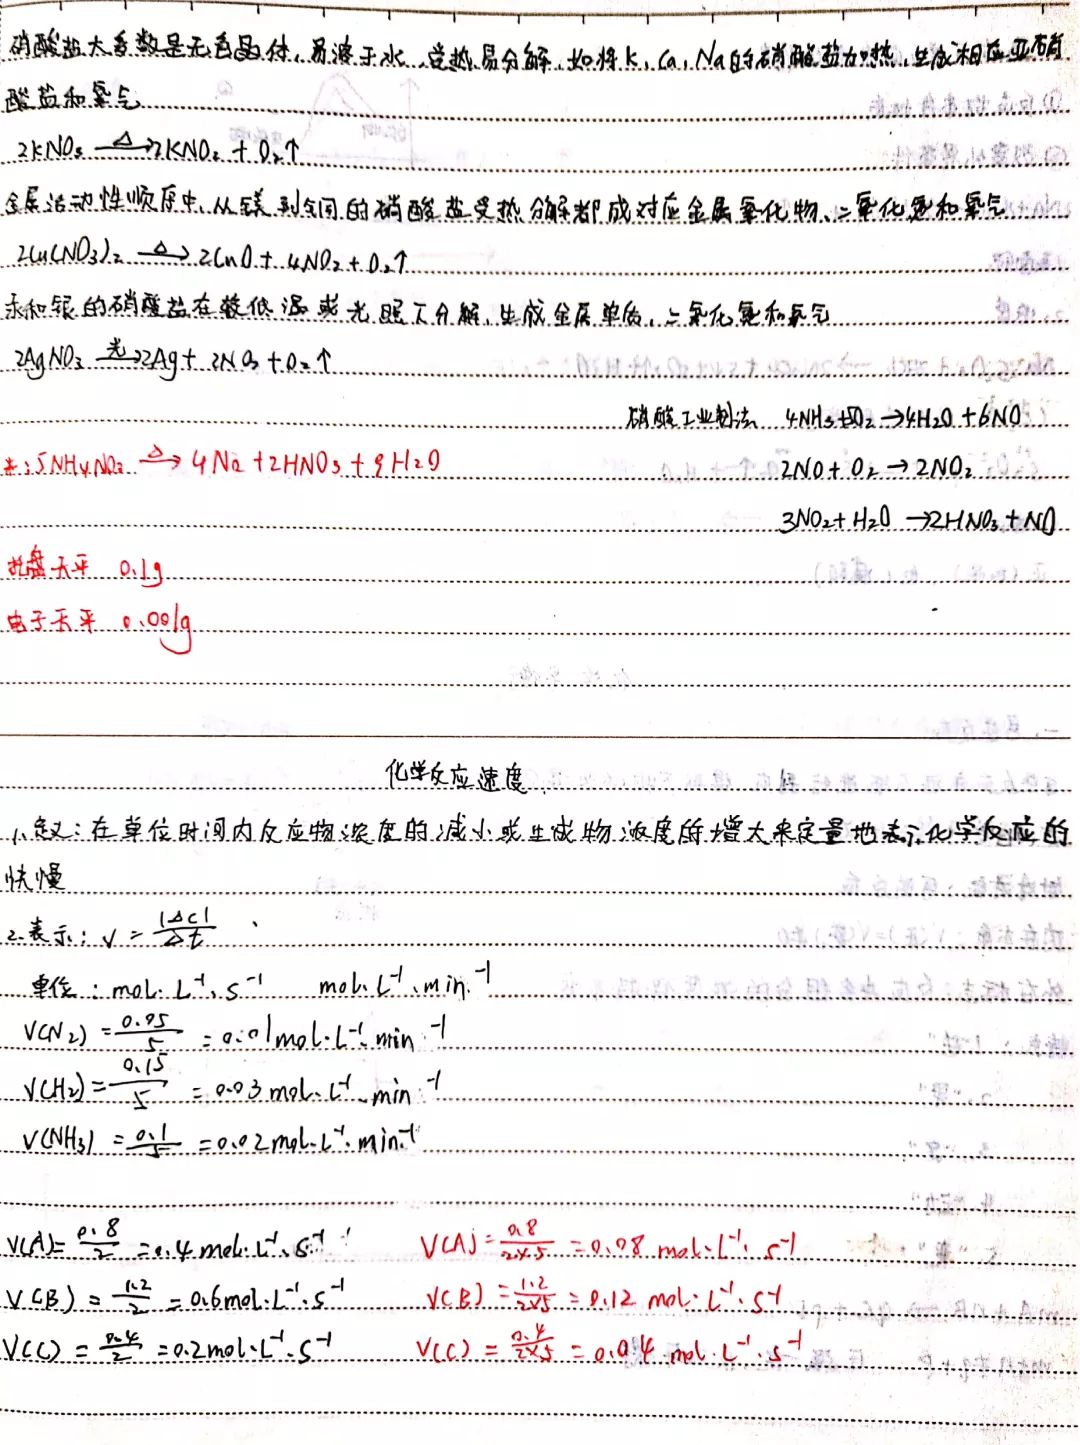 硝酸盐大多数是无色晶体，易溶于水，受热易分解，如将K，Ca，Na的硝酸盐加热，生成相应亚硝
酸盐和氧气
2KNO₃ —△→ 2KNO₂ + O₂↑
金属活动性顺序中，从镁到铜的硝酸盐受热分解都成对应金属氧化物、二氧化氮和氧气
2Cu(NO₃)₂ —△→ 2CuO + 4NO₂ + O₂↑
汞和银的硝酸盐在较低温或光照下分解，生成金属单质，二氧化氮和氧气
2AgNO₃ —光→ 2Ag + 2NO₂ + O₂↑
硝酸工业制法 4NH₃+5O₂ → 4H₂O + 6NO
5NH₄NO₃ —△→ 4N₂ + 2HNO₃ + 9H₂O
2NO + O₂ → 2NO₂
3NO₂ + H₂O → 2HNO₃ + NO
托盘天平 0.1g
电子天平 0.001g
化学反应速度
1、定义：在单位时间内反应物浓度的减小或生成物浓度的增大来定量地表示化学反应的
快慢
2.表示：v = |△c|/△t
单位：mol·L⁻¹·s⁻¹ mol·L⁻¹·min⁻¹
V(N₂) = 0.05/5 = 0.01mol·L⁻¹·min⁻¹
V(H₂) = 0.15/5 = 0.03mol·L⁻¹·min⁻¹
V(NH₃) = 0.1/5 = 0.02mol·L⁻¹·min⁻¹
V(A) = 0.8/2 = 0.4mol·L⁻¹·s⁻¹ V(A) = 0.8/2×5 = 0.08 mol·L⁻¹·s⁻¹
V(B) = 1.2/2 = 0.6mol·L⁻¹·s⁻¹ V(B) = 1.2/2×5 = 0.12 mol·L⁻¹·s⁻¹
V(C) = 0.4/2 = 0.2mol·L⁻¹·s⁻¹ V(C) = 0.4/2×5 = 0.04 mol·L⁻¹·s⁻¹